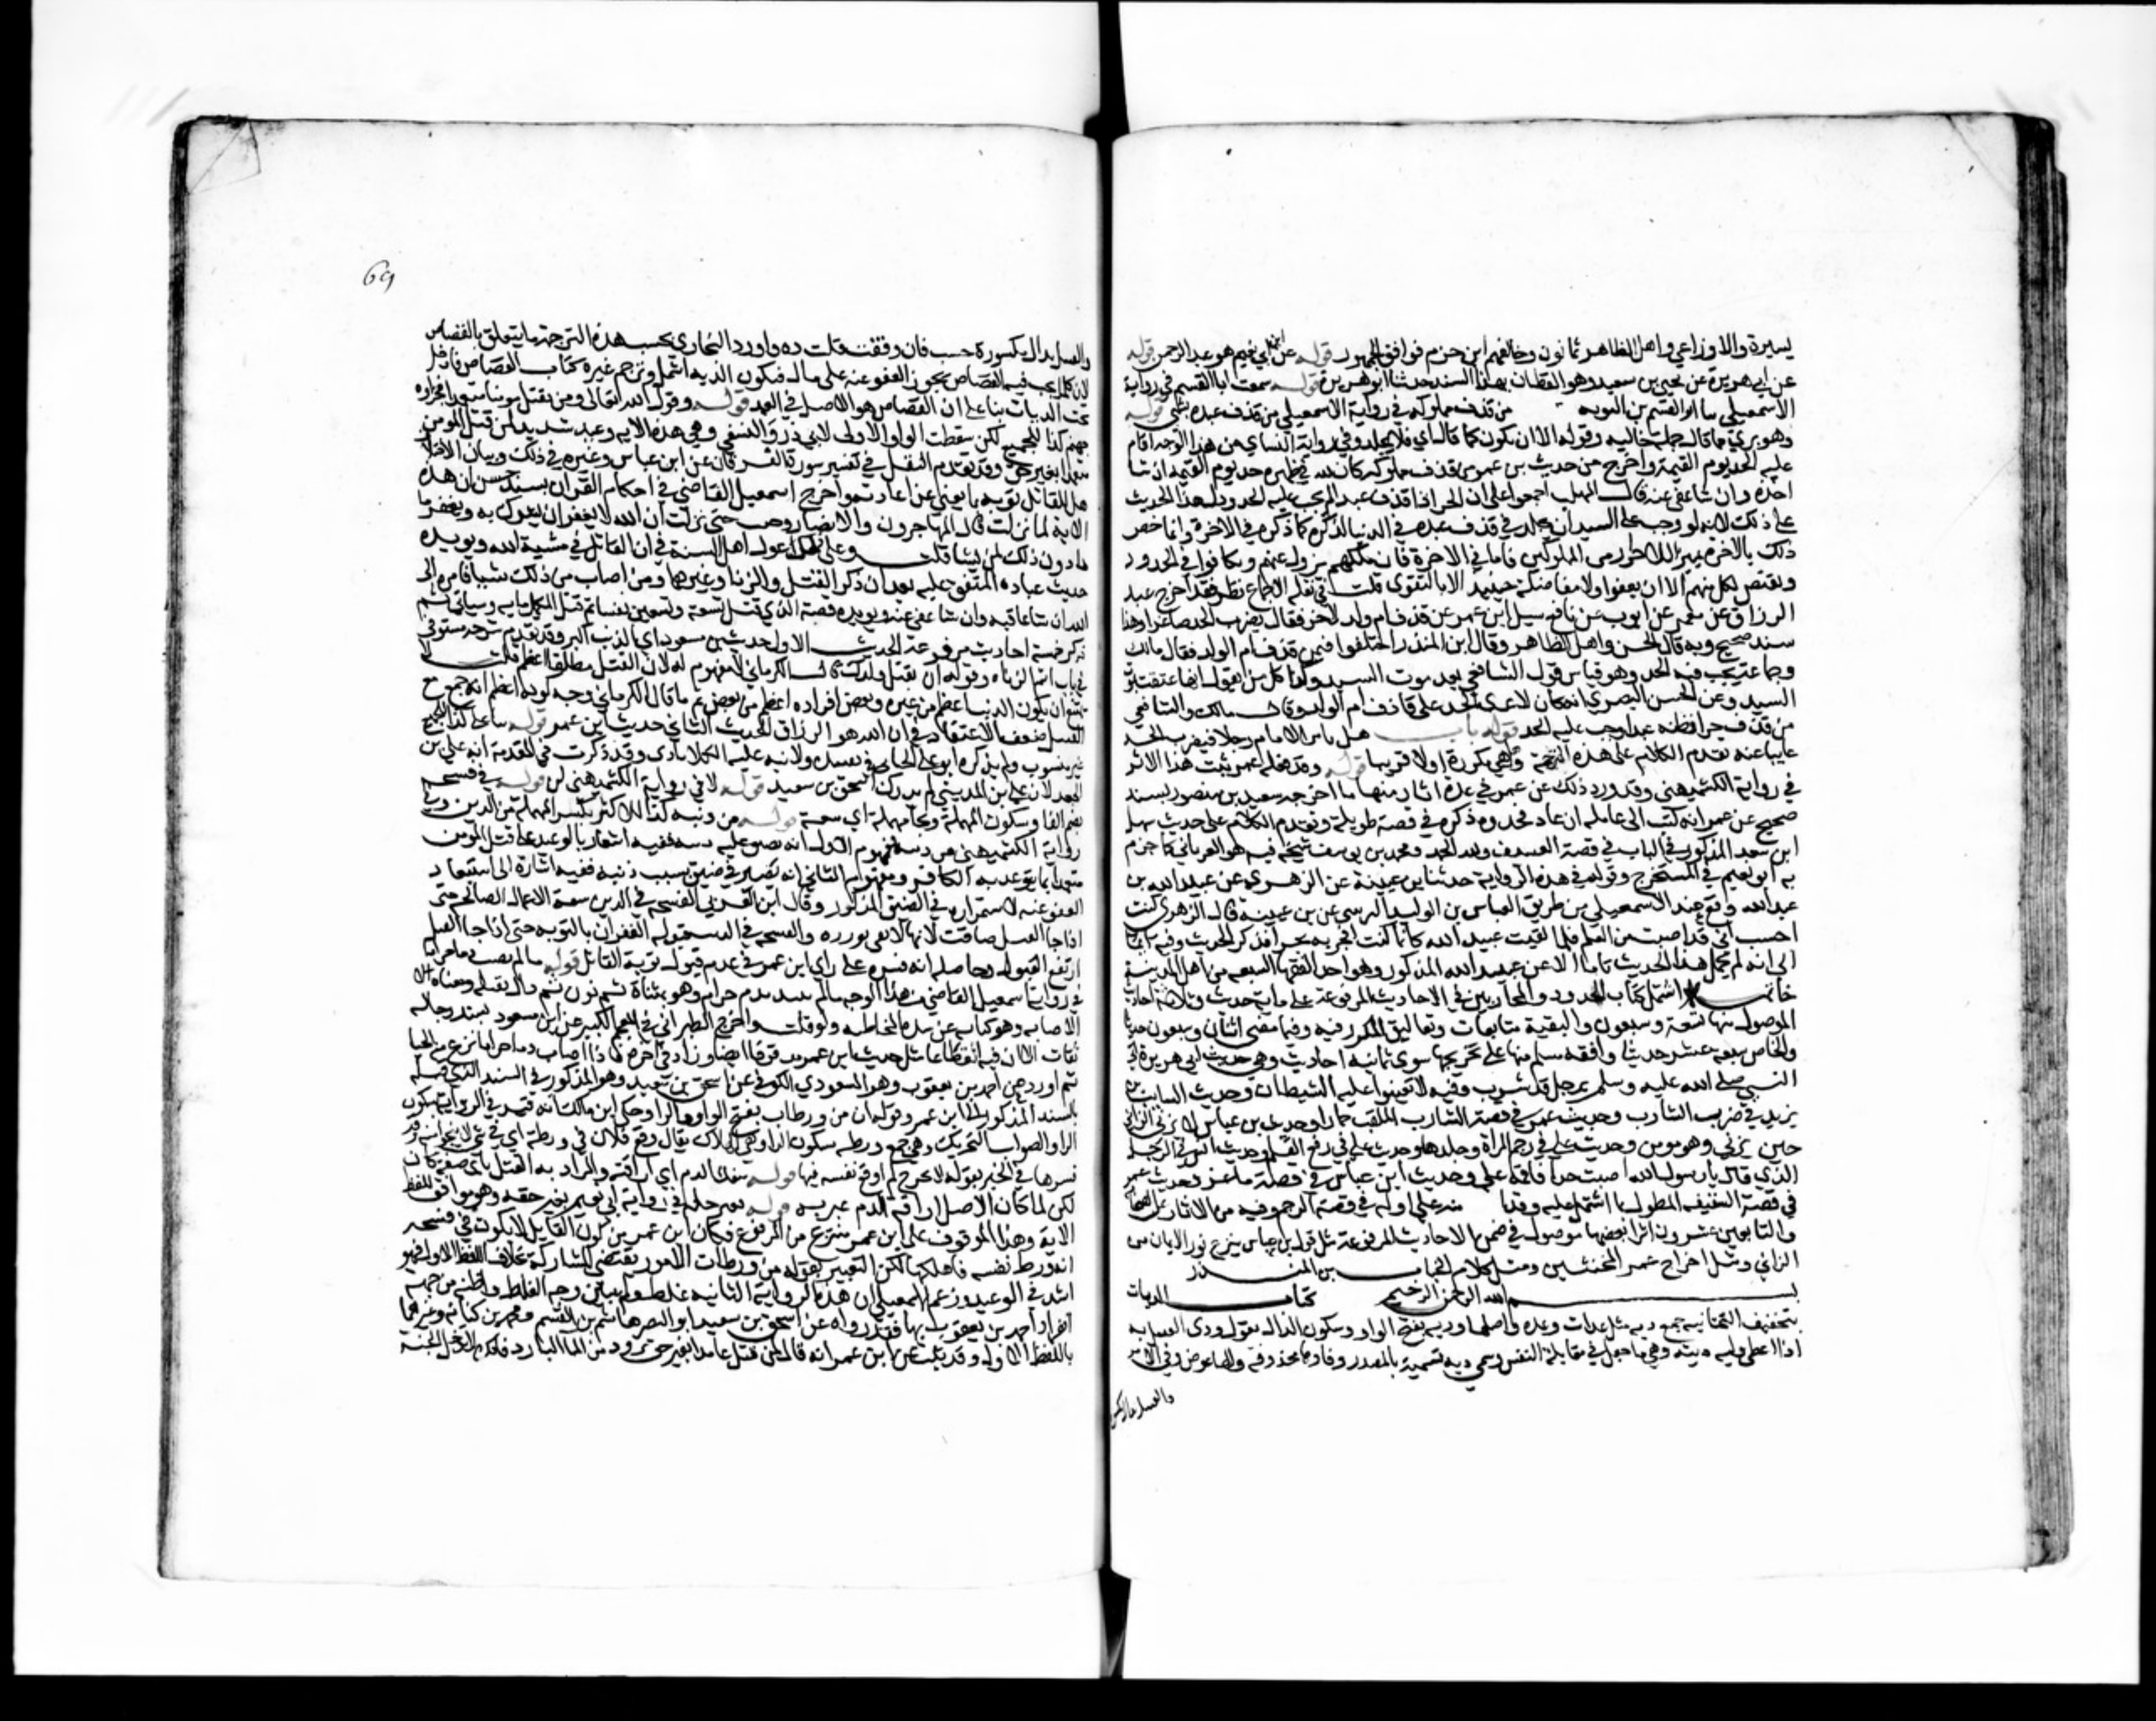 يسيرة والاوزاعي واهل الظاهر ثمانون وخالفهم ابن حزم فوافق الجمهور قوله عن ابن ابي نعيم هو عبد الرحمن قوله
عن ابي هريرة عن يحيى بن سعيد وهو القطان بهذا السند حدثنا ابو هريرة قوله سمعت ابا القسم في رواية
الاسمعيلي ابو القسم نبي التوبه من قذف مملوكه في رواية الاسمعيلي من قذف عبده بشي قوله
وهو بريء مما قال جملة حاليه وقوله الا ان يكون كما قال اي فلا يجلد وفي رواية النساي من هذا الوجه اقام
عليه الحد يوم القيمة واخرج من حديث بن عمر من قذف مملوكه كان لله في ظهره حد يوم القيمة ان شا
اخذه وان شا عفى عنه قال المهلب اجمعوا على ان الحر اذا قذف عبدا لم يجب عليه الحد ودل هذا الحديث
على ذلك لانه لو وجب على السيد ان يجلد في قذف عبده في الدنيا لذكره كما ذكره في الاخرة وانما خص
ذلك بالاخرة تمييزا للاحرار من المملوكين فاما في الاخرة فان ملكهم يزول عنهم ويتكافوا في الحدود
ويقتص لكل منهم الا ان يعفوا ولا مفاضلة حينيذ الا بالتقوى قلت في نقله الاجماع نظر فقد اخرج عبد
الرزاق عن معمر عن ايوب عن نافع سيل ابن عمر عن قذف ام ولد لاخر فقال يضرب الحد صاغرا وهذا
سند صحيح وبه قال الحسن واهل الظاهر وقال ابن المنذر اختلفوا فيمن قذف ام الولد فقال مالك
وجماعة يجب فيه الحد وهو قياس قول الشافعي بعد موت السيد وكذا كل من يقول انها عتقت بموت
السيد وعن الحسن البصري انه كان لا يرى الحد على قاذف ام الولد وقال مالك والشافعي
من قذف حرا يظنه عبدا وجب عليه الحد قوله باب هل يامر الامام رجلا فيضرب الحد
غايبا عنه تقدم الكلام على هذه الترجمة قوله وقد فعله عمر ثبت هذا الاثر
في رواية الكشميهني وقد ورد ذلك عن عمر في عدة اثار منها ما اخرجه سعيد بن منصور بسند
صحيح عن عمر انه كتب الى عامله ان عاد فحدوه ذكره في قصة طويلة وتقدم الكلام على حديث سهل
ابن سعد المذكور في الباب في قصة العسيف ولله الحمد ومحمد بن يوسف شيخه فيه هو الفريابي كما جزم
به ابو نعيم في المستخرج وقوله في هذه الرواية حدثنا بن عيينة عن الزهري عن عبيد الله بن
عبد الله وقع عند الاسمعيلي من طريق العباس بن الوليد النرسي عن بن عيينة قال الزهري كنت
احسب اني قد اصبت من العلم فلما لقيت عبيد الله كانما كنت افجر به بحرا فذكر الحديث وفيه
الى انه لم يحمل هذا الحديث تاما الا عن عبيد الله المذكور وهو احد الفقها السبعه من اهل المدينة
خاتمه اشتمل كتاب الحدود والمحاربين في الاحاديث المرفوعة على ماية حديث وثلاثة احاديث
الموصول منها تسعة وسبعون والبقية متابعات وتعاليق المكرر فيه وفيما مضى اثنان وسبعون حديثا
والخالص سبعه عشر حديثا وافقه مسلم منها على تخريجها سوى ثمانيه احاديث وهي حديث ابي هريرة
النبي صلى الله عليه وسلم برجل قد شرب وفيه لا تعينوا عليه الشيطان وحديث السايب بن
يزيد في ضرب الشارب وحديث عمر في قصة الشارب الملقب حمارا وحديث بن عباس لا يزني الزاني
حين يزني وهو مومن وحديث علي في رجم المراة وجلدها وحديث علي في رفع القلم وحديث انس في الرجل
الذي قال يا رسول الله اصبت حدا فاقمه علي وحديث ابن عباس في قصة ماعز وحديث عمر
في قصة السقيفة المطول بما اشتمل عليه وفيه من الاثار عن الصحابة
والتابعين عشرون اثرا بعضها موصول في ضمن الاحاديث المرفوعة مثل قول ابن عباس ينزع نور الايمان من
الزاني ومثل اخراج عمر المخنثين ومثل كلام الحباب بن المنذر
بسم الله الرحمن الرحيم كتاب الديات
بتخفيف التحتانيه جمع ديه مثل عدات وعده واصلها وديه بفتح الواو وسكون الدال تقول ودى القتيل يديه
اذا اعطى وليه ديته وهي ما جعل في مقابلة النفس وسمي ديه تسمية بالمصدر وفاوها محذوفة والها عوض وفي الامر
69
د القتيل بدال مكسورة حسب فان وقفت قلت ده واورد البخاري تحت هذه الترجمة ما يتعلق بالقصاص
لان كلما يجب فيه القصاص يجوز العفو عنه على مال فتكون الديه اشمل وترجم غيره كتاب القصاص وادخل
تحت الديات بنا على ان القصاص هو الاصل في العمد قوله وقول الله تعالى ومن يقتل مومنا متعمدا فجزاوه
جهنم كذا للجميع لكن سقطت الواو الاولى لابي ذر والنسفي وفي هذه الايه وعيد شديد لمن قتل المومن
متعمدا بغير حق وقد تقدم النقل في تفسير سورة الفرقان عن ابن عباس وغيره في ذلك وبيان الاختلاف
هل للقاتل توبه بما يغني عن اعادته واخرج اسمعيل القاضي في احكام القران بسند حسن ان هذه
الاية لما نزلت قال المهاجرون والانصار وجبت حتى نزلت ان الله لا يغفر ان يشرك به ويغفر ما
ما دون ذلك لمن يشا قلت وعلى ذلك عول اهل السنة في ان القاتل في مشية الله ويويده
حديث عباده المتفق عليه بعد ان ذكر القتل والزنا وغيرهما ومن اصاب من ذلك شيا فامره الى
الله ان شا عاقبه وان شا عفى عنه ويويده قصة الذي قتل تسعة وتسعين نفسا ثم قتل المكمل مايه وسياتي ثم
ذكر خمسة احاديث مرفوعة الحديث الاول حديث بن مسعود اي الذنب اكبر وقد تقدم شرحه مستوفى
في باب اثم الزناه وقوله ان يقتل ولدك قال الكرماني لا مفهوم له لان القتل مطلقا اعظم قلت لا
يمتنع ان يكون الذنب اعظم من غيره وبعض افراده اعظم من بعض ثم قال الكرماني وجه كونه اعظم انه جمع مع
القتل ضعف الاعتقاد في ان الله هو الرزاق الحديث الثاني حديث ابن عمر قوله ثنا علي كذا للجميع
غير منسوب ولم يذكره ابو علي الجياني في تقييده ولا نبه عليه الكلاباذي وقد ذكرت في المقدمة انه علي بن
الجعد لان علي بن المديني لم يدرك اسحق بن سعيد قوله لا في رواية الكشميهني لن قوله في فسحة
بضم الفا وسكون المهملة وبحا مهملة اي سعة قوله من دينه كذا للاكثر بكسر المهملة من الدين وفي
رواية الكشميهني من ذنبه فمفهوم الاول انه يضيق عليه دينه ففيه اشعار بالوعيد على قتل المومن
متعمدا بما يتوعد به الكافر ومفهوم الثاني انه يصير في ضيق بسبب ذنبه ففيه اشارة الى استبعاد
العفو عنه لاستمراره في الضيق المذكور وقال ابن العربي الفسحه في الدين سعة الاعمال الصالحة حتى
اذا جا القتل ضاقت لانها لا تفي بوزره والفسحه في الذنب قبوله الغفران بالتوبه حتى اذا جا القتل
ارتفع القبول وحاصله انه فسره على راي ابن عمر في عدم قبول توبة القاتل قوله ما لم يصب دما حراما
في رواية اسمعيل القاضي من هذا الوجه ما لم يتند بدم حرام وهو بمثناة ثم نون ثم دال ثقيله ومعناه
الاصابه وهو كنايه عن شدة المخاطله ولو قلت واخرج الطبراني في المعجم الكبير عن ابن مسعود بسند رجاله
ثقات الا ان فيه انقطاعا مثل حديث ابن عمر موقوفا ايضا وزاد في اخره فاذا اصاب دما حراما نزع منه الحيا
ثم اورد عن احمد بن يعقوب وهو المسعودي الكوفي عن اسحق بن سعيد وهو المذكور في السند الذي قبله
بالسند المذكور الى ابن عمر وقوله ان من ورطات بفتح الواو والرا وحكى ابن مالك انه قيد في الرواية بسكون
الرا والصواب التحريك وهي جمع ورطه بسكون الرا وهي الهلاك يقال وقع فلان في ورطة اي في شي لا ينجو منه وقد
فسرها في الخبر بقوله لا مخرج لمن اوقع نفسه فيها قوله سفك الدم اي اراقته والمراد به القتل باي صفة كان
لكن لما كان الاصل اراقة الدم عبر به قوله بغير حله في رواية ابي نعيم بغير حقه وهو موافق للفظ
الاية وهذا الموقوف على ابن عمر منتزع من المرفوع فكان ابن عمر من كون القاتل لا يكون في فسحه
انه ورط نفسه فاهلكها لكن التعبير بقوله من ورطات الامور يقتضي المشاركة بخلاف اللفظ الاول فهو
اشد في الوعيد وزعم الاسمعيلي ان هذه الرواية الثانيه غلط ولم يبين وجه الغلط واظنه من جهة
انفراد احمد بن يعقوب بها فقد رواه عن اسحق بن سعيد ابو النصر هاشم بن القسم ومحمد بن كنانة وغيرهما
باللفظ الاول وقد ثبت عن ابن عمر انه قال لمن قتل عامدا بغير حق تزود من الما البارد فانك لا تدخل الجنة